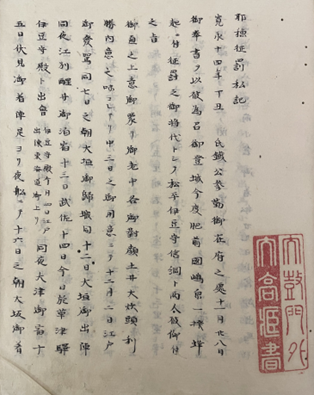 耶穌征罰私記
寛永十四年丁丑 氏鐵公參勤御在府之處十一月八日
御奉書ヲ以被為召御登城今度肥前國嶋原一揆蜂
起ニ付征罰之御將代トシテ松平伊豆守信綱ト両人被仰付
之旨
御直之上意御蒙リ御老中各御對顔土井大炊頭利
勝内意之 中三日之御用意ニテ十二月二日江戸
御發駕同七日之朝大垣御歸城同十二日大垣御出陣
同夜江州醒井御泊宿十三日武佐十四日今日於草津驛
伊豆守殿ト出會 伊豆守殿今月四日江戸出陣東海道御上リ 同夜大津御宿十
五日伏見御着陣 ヨリ夜船ニテ十六日之朝大坂御着